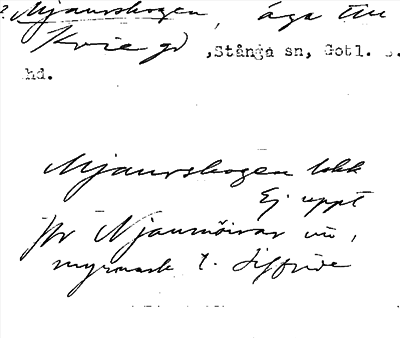 Mjaurskogen, äga till
Kvie gd, Stånga sn, Gotl. s.
hd.
Mjaurskogen lokk
Ej uppt
jfr Mjaumöirar
myrmark t. Siffride